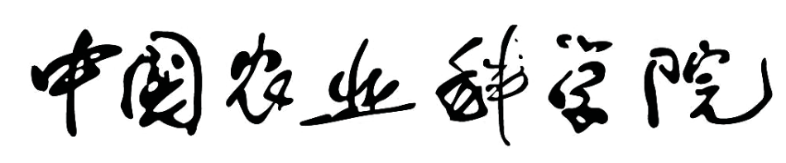 中国农业科学院